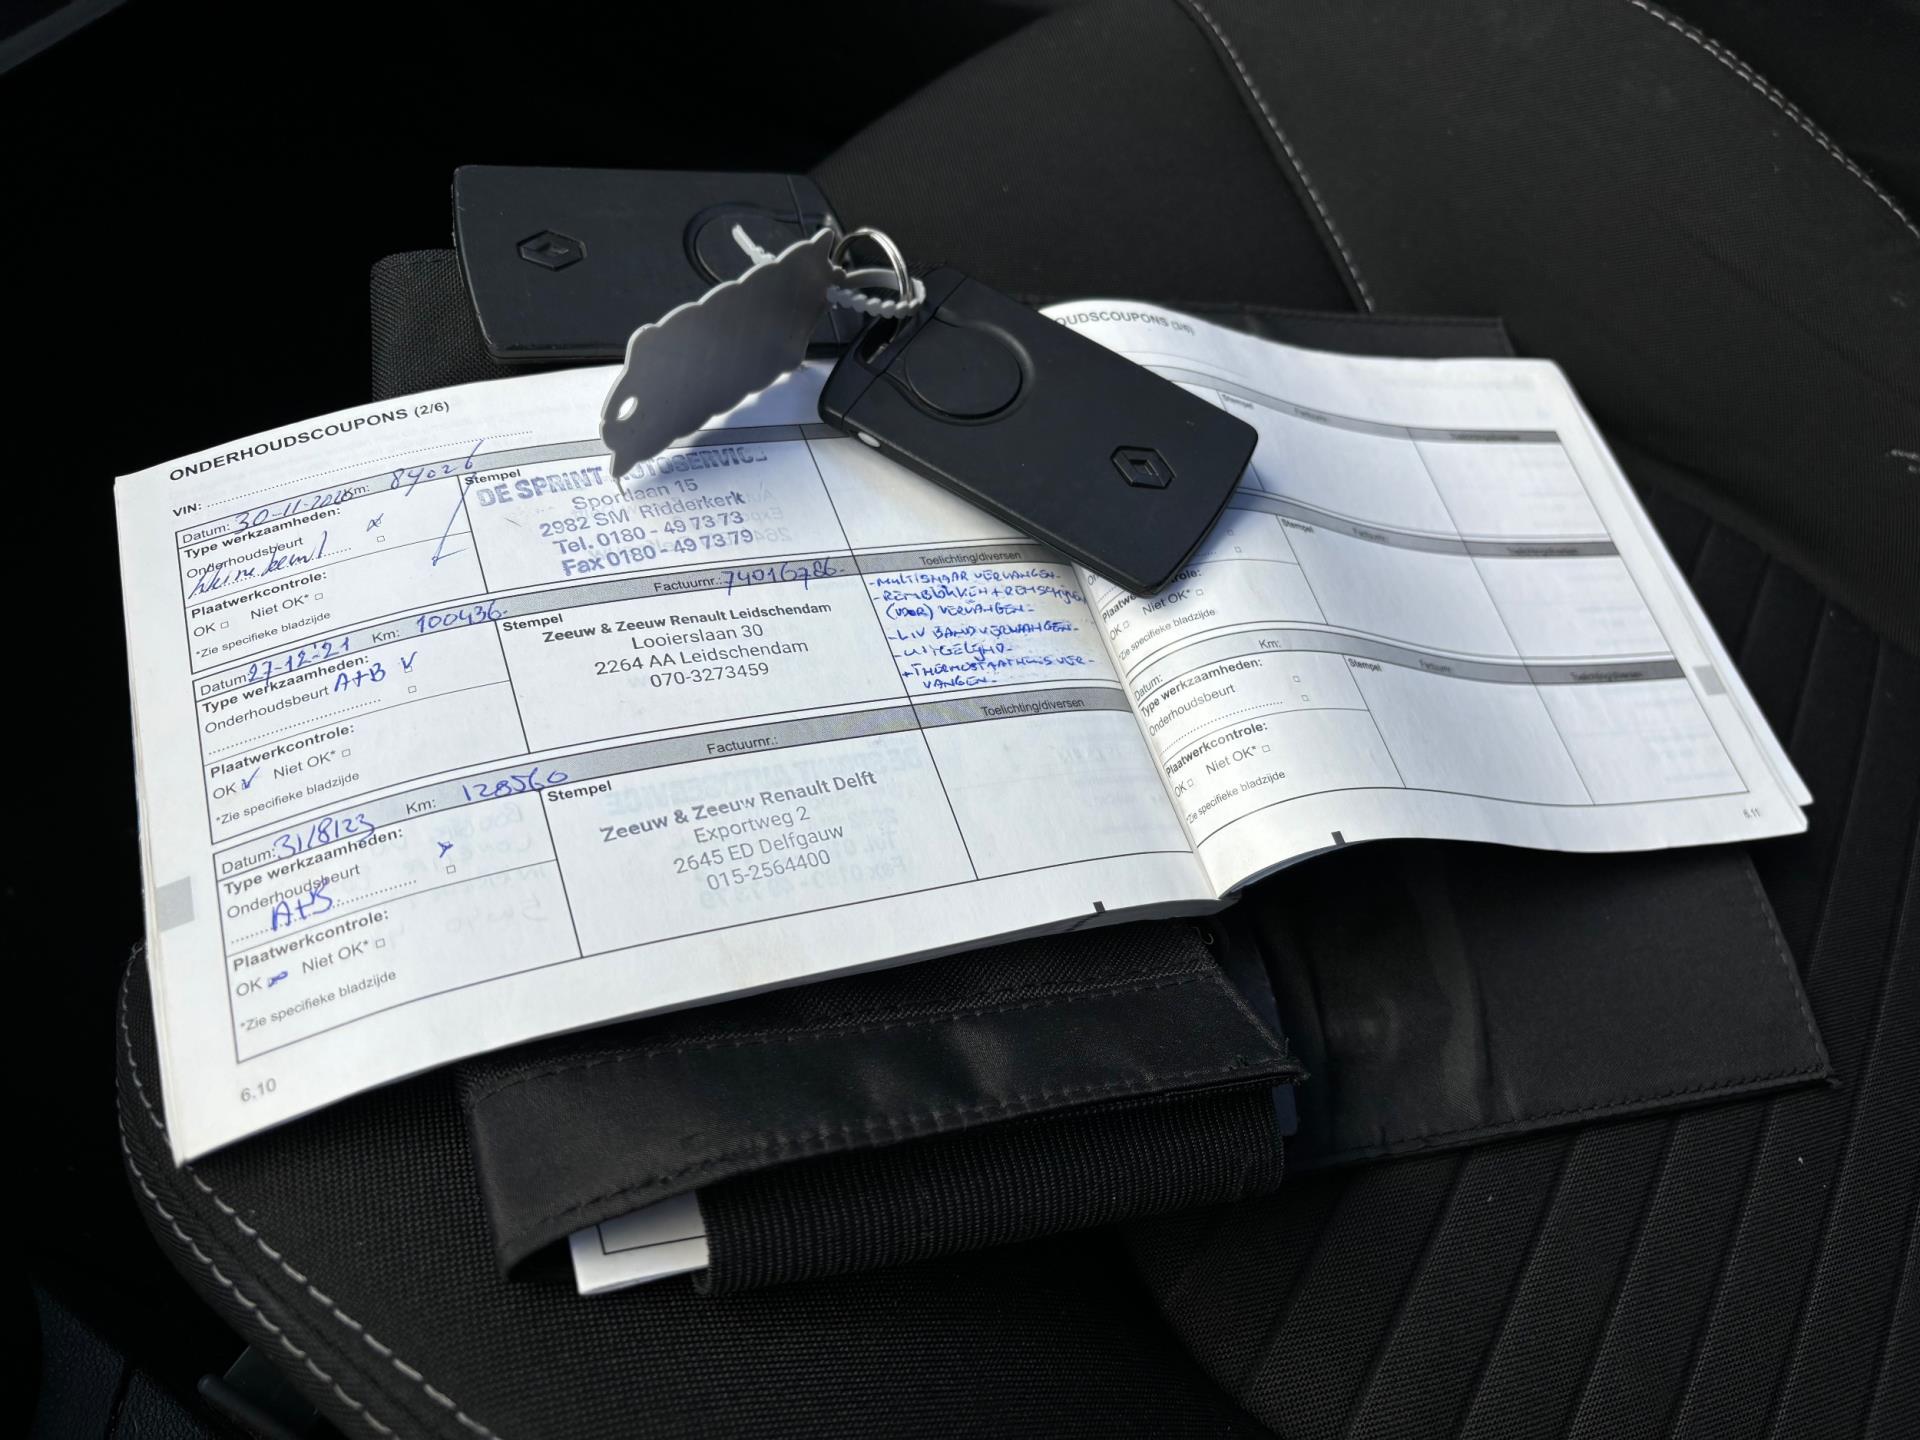 ONDERHOUDSCOUPONS (2/6)
VIN:
Datum: 30-11-2020 Km: 84026
Stempel
Type werkzaamheden:
Onderhoudsbeurt
Plaatwerkcontrole:
OK □ Niet OK* □
*Zie specifieke bladzijde
DE SPRINT AUTOSERVICE
Sportlaan 15
2982 SM Ridderkerk
Tel. 0180 - 49 73 73
Fax 0180 - 49 73 79
Datum: 27-12-'21 Km: 100436.
Stempel
Factuurnr.: 74016786.
Toelichting/diversen
Type werkzaamheden:
Onderhoudsbeurt A+B √
Plaatwerkcontrole:
OK √ Niet OK* □
*Zie specifieke bladzijde
Zeeuw & Zeeuw Renault Leidschendam
Looierslaan 30
2264 AA Leidschendam
070-3273459
- MULTISNAAR VERVANGEN-
- REMBLOKKEN + REMSCHIJVEN
(VOOR) VERVANGEN-
- LIV BAND VERVANGEN-
- UITGELIJND-
+ THERMOSTAATHUIS VER-
VANGEN-
Datum: 31/8/23 Km: 128560
Stempel
Factuurnr.:
Toelichting/diversen
Type werkzaamheden:
Onderhoudsbeurt
A+B
Plaatwerkcontrole:
OK Niet OK* □
*Zie specifieke bladzijde
Zeeuw & Zeeuw Renault Delft
Exportweg 2
2645 ED Delfgauw
015-2564400
6.10
OUDSCOUPONS (3/6)
Stempel
Stempel
OK □ Niet OK* □
*Zie specifieke bladzijde
Datum: Km:
Stempel
Factuurnr.:
Toelichting/diversen
Type werkzaamheden:
Onderhoudsbeurt
Plaatwerkcontrole:
OK □ Niet OK* □
*Zie specifieke bladzijde
6.11